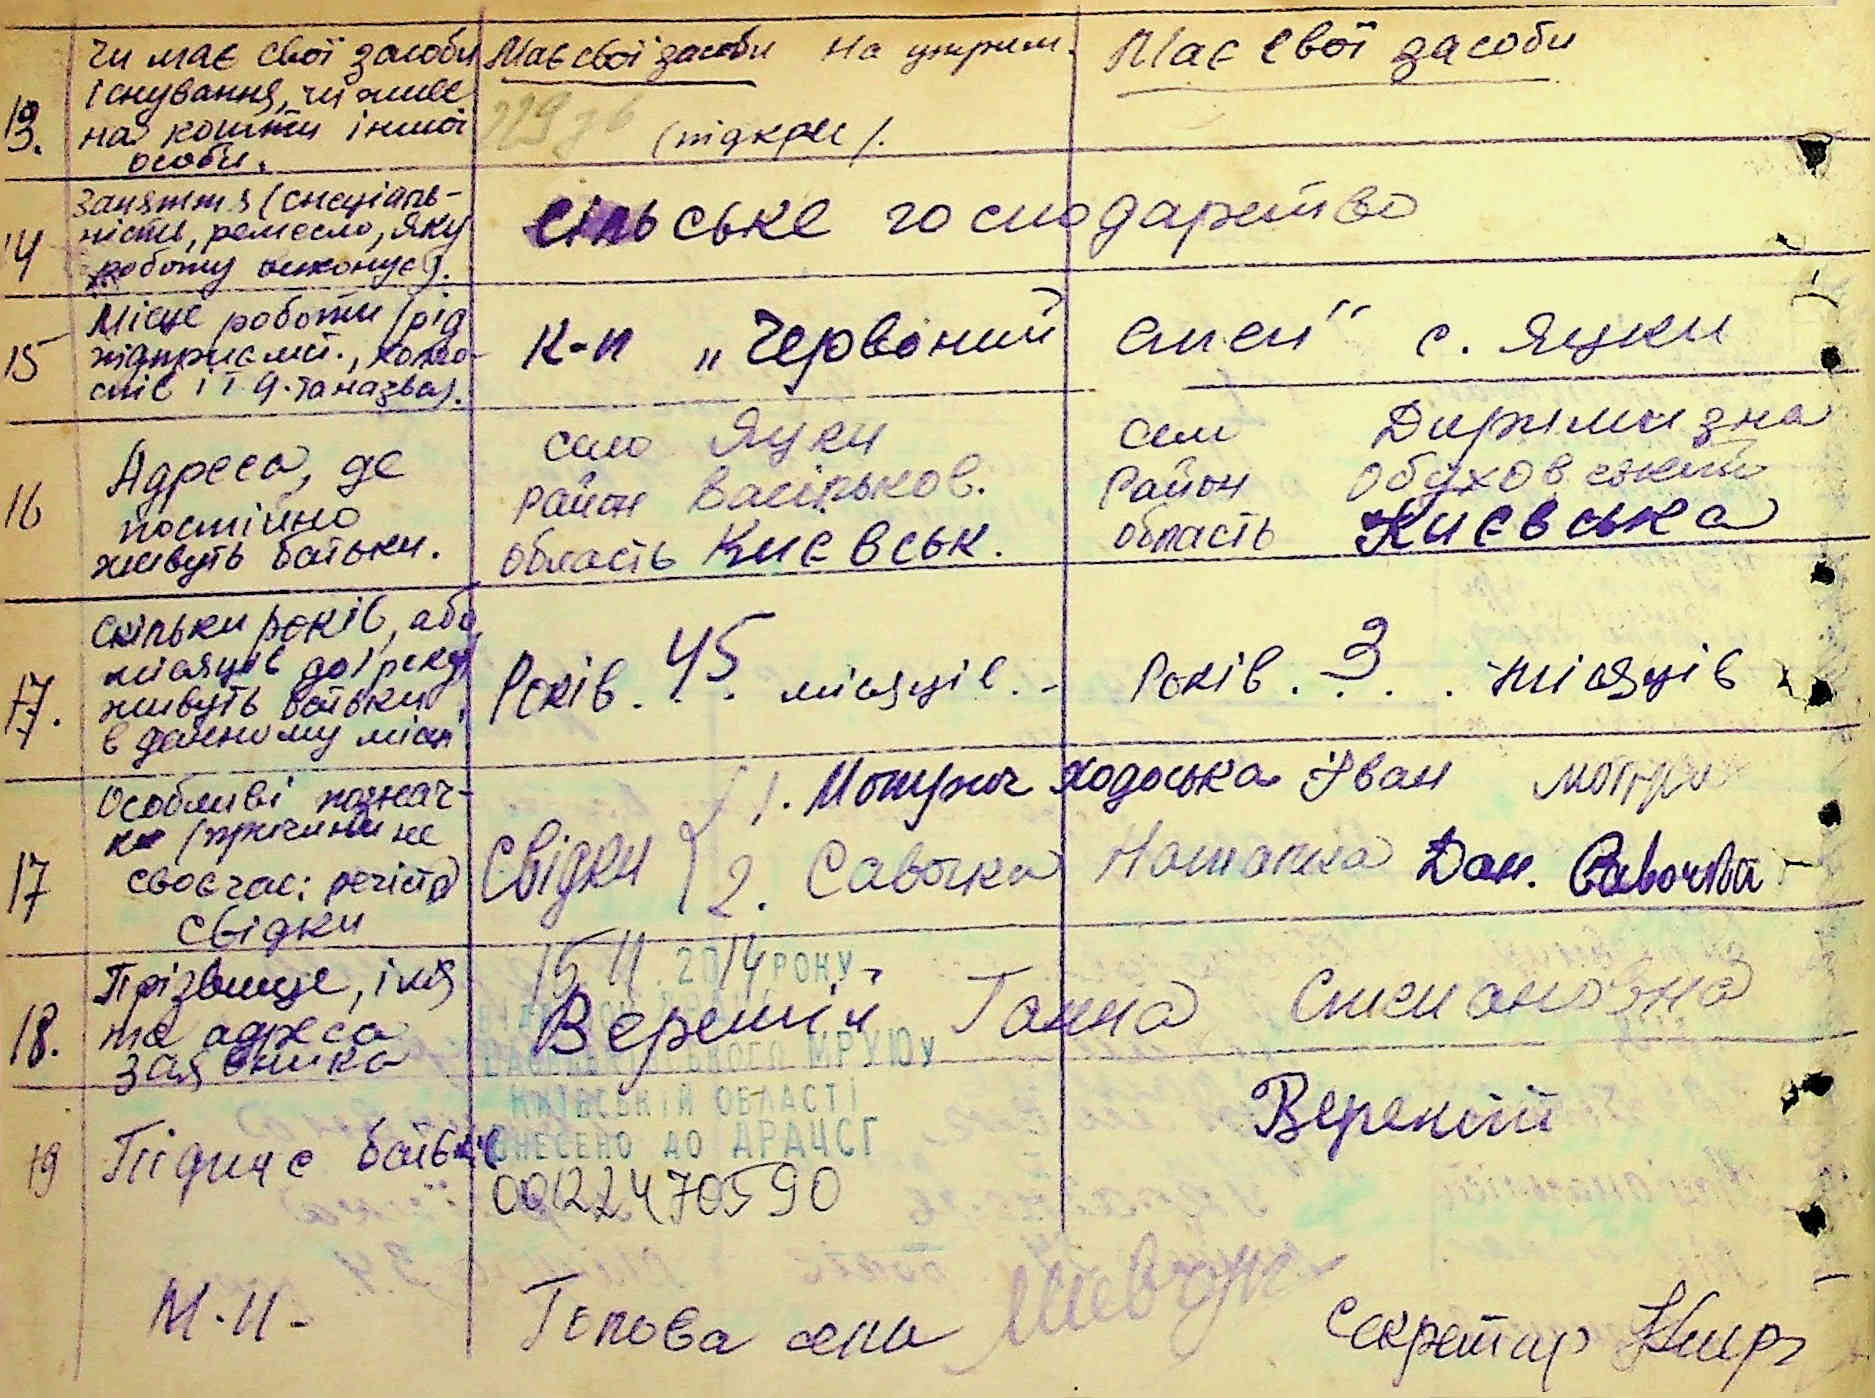 13. Чи має свої засоби існування, чи живе на кошти іншої особи.
Має свої засоби На утрим.
(підкрес).
Має свої засоби
14 Заняття (спеціальність, ремесло, яку роботу виконує).
сільське господарство
15 Місце роботи (рід підприємст., колгоспів і т.д. та назва).
к-п „Червоний степ" с. Яцки
16 Адреса, де постійно живуть батьки.
село Яцки
район Васільков.
область Києвськ.
село Деримизна
район Обуховський
область Києвська
17. Скільки років, або місяців до 1 року живуть батьки в данному місці
Років . 45 . місяців. -
Років . 3 . . місяців
17 Особливі познач-
ки (причини не
своєчас: реєстра
свідки
Свідки { 1. Мотрич Ходоська Іван
2. Савочка Наталка Дан. Савочка
18. Прізвище, імя та адреса заявника
Веремій Ганна Степановна
15 11. 2014 РОКУ
ВАСИЛЬКІВСЬКОГО МРУЮ
КИЇВСЬКІЙ ОБЛАСТІ
ВНЕСЕНО ДО ДРАЦСГ
00122470590
19 Підпис батьків
Веремій
М.П.
Голова с/ради
Секретар